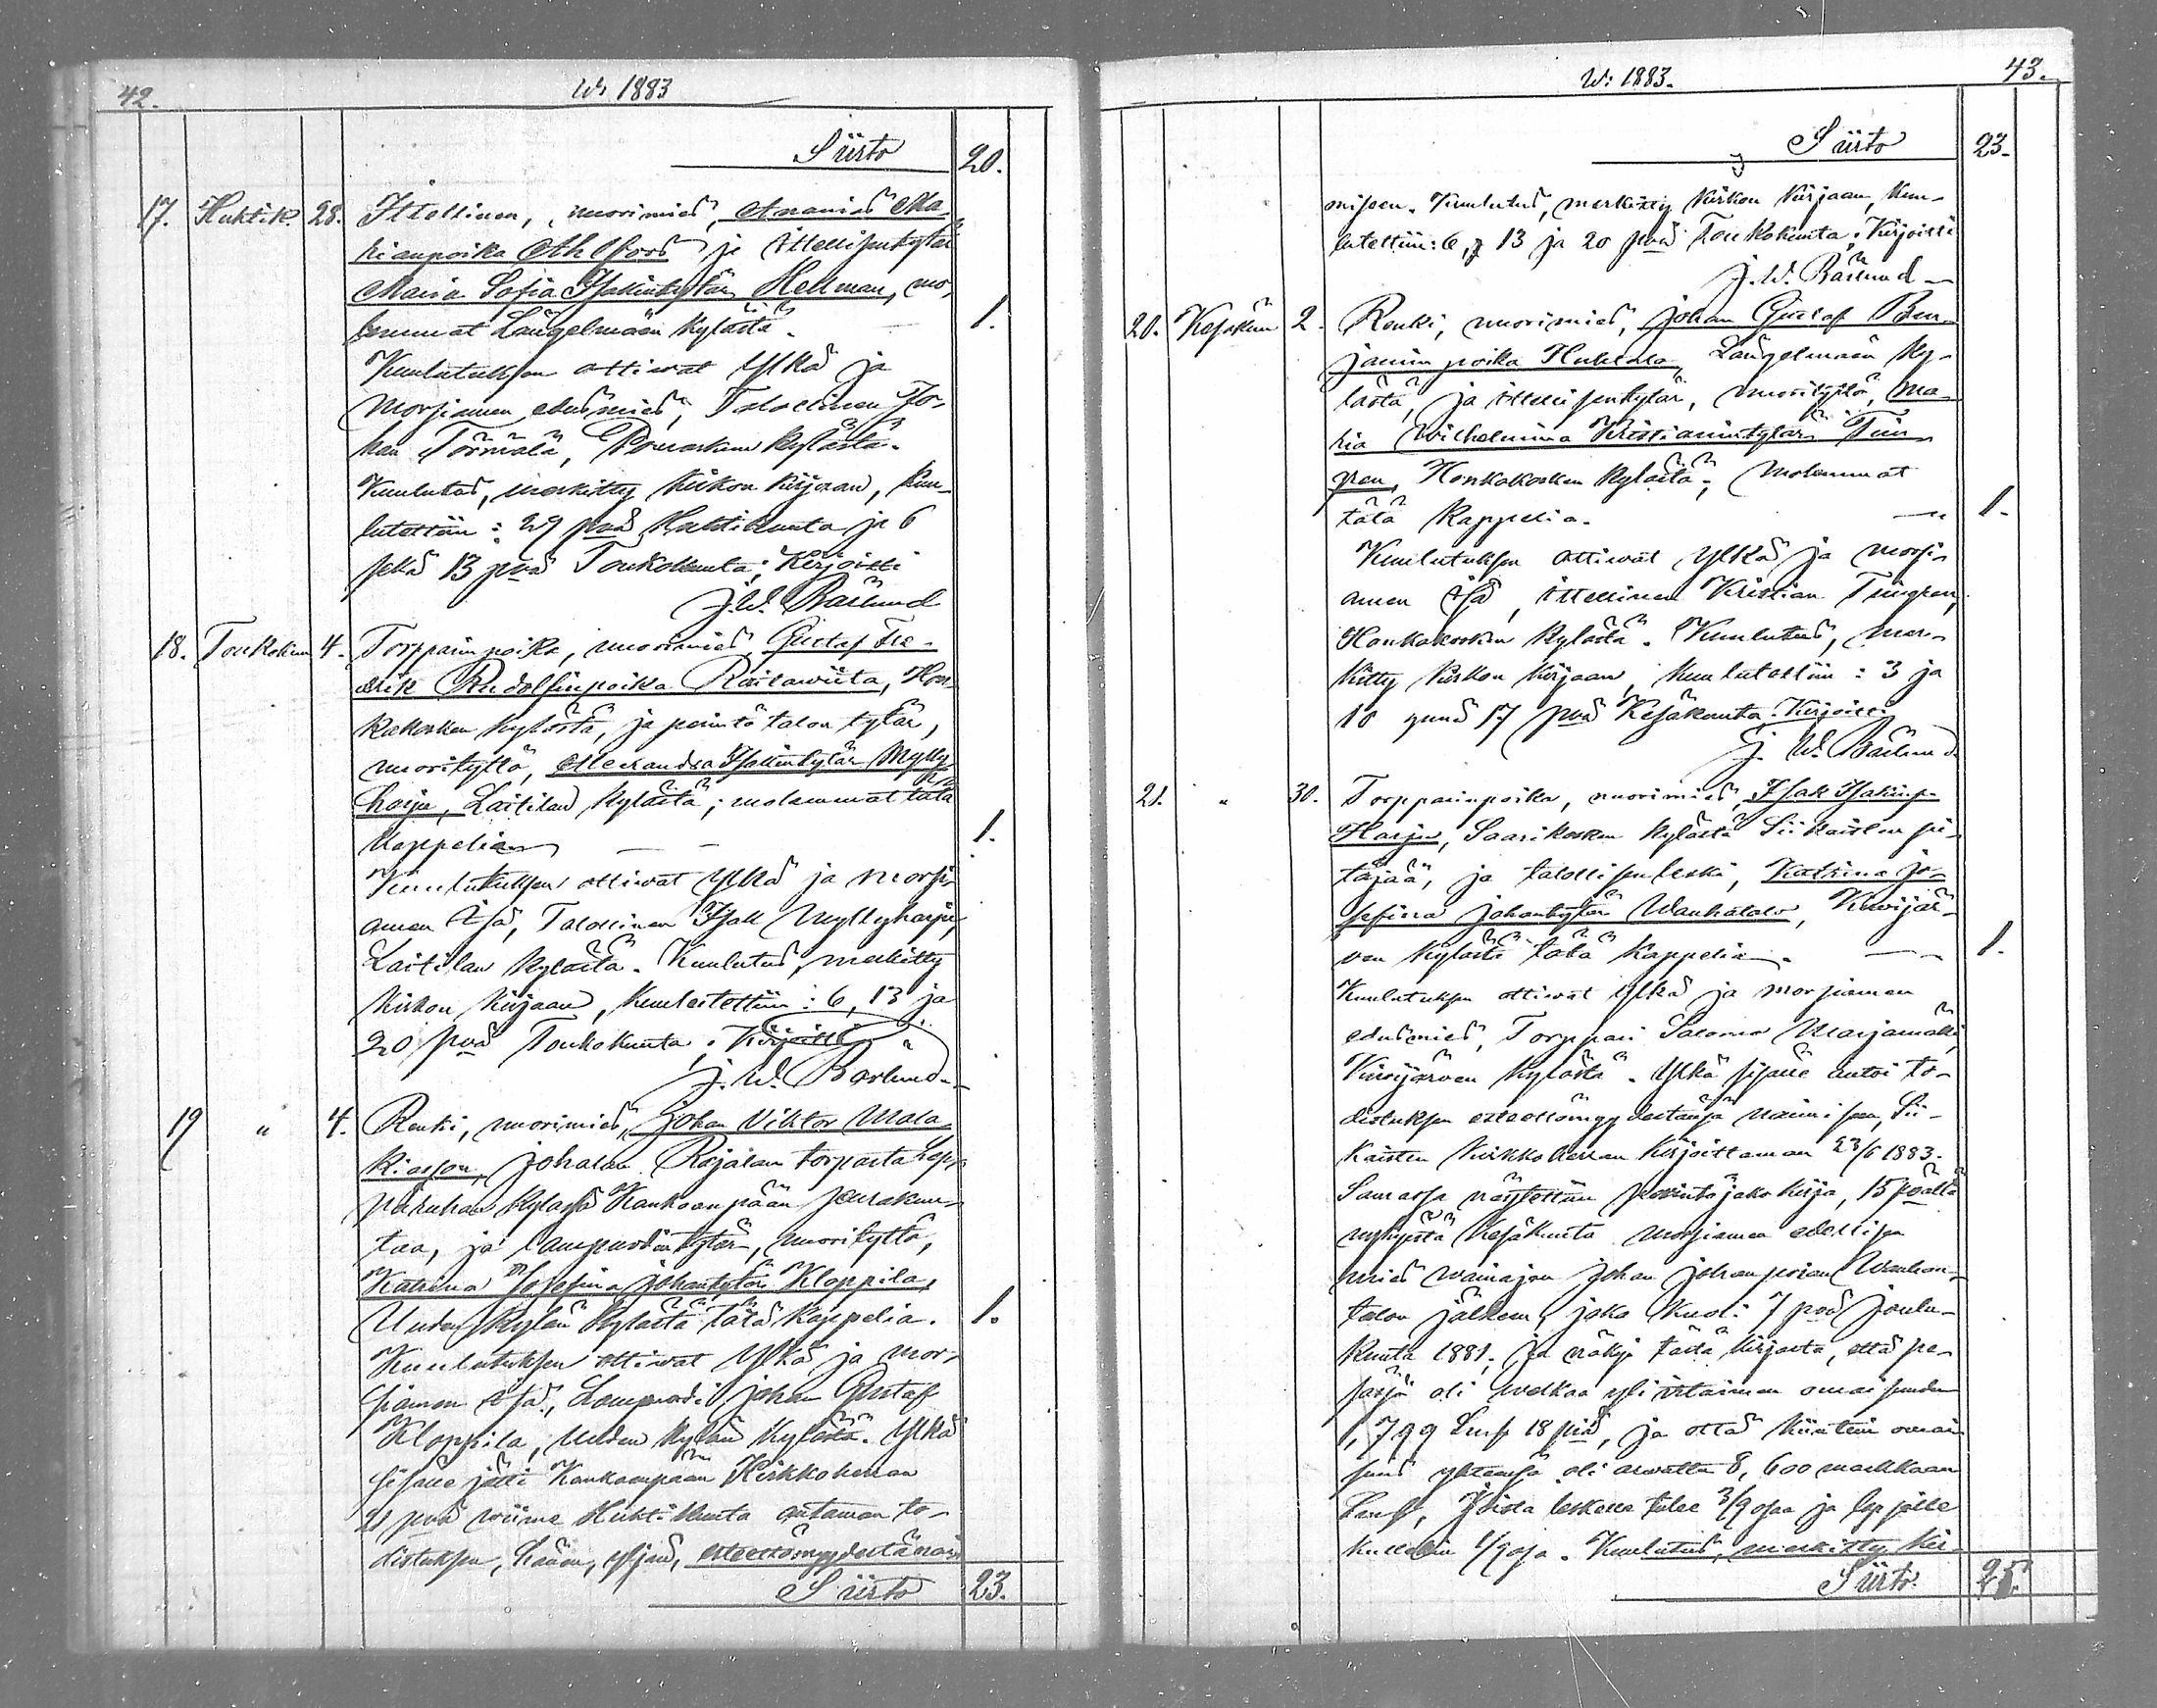 42.
W: 1883
Siirto 20.
17. Huhtik. 28. Ittellinen, nuorimies,
Maria Sofia Isakintytär Hellman, mo-
lemmat Längelmään kylästä. 1.
Kuulutuksen ottiwat Ylkä ja
Morsiamen edusmies, Talollinen Jo-
han Törmälä, Pomarkun kylästä.
Kuulutus, merkitty kirkon kirjaan, kuu-
lutettiin: 29 pvä Huhtikuuta ja 6
sekä 13 pvä Toukokuuta; Kirjoitti
J. W. Barlund
18. Toukokuu 4. Torpparin poika, nuorimies, Gustaf Fre-
drik Rudolfinpoika Raitawiita, Hon-
kakosken kylästä, ja perintö talon tytär,
nuorityttö, Aleksandra Isakintytär Mylly-
harju, Laitilan kylästä; molemmat tätä
Kappelia 1.
Kuulutuksen ottiwat Ylkä ja morsi-
amen Isä, Talollinen Isak Myllyharju,
Laitilan kylästä. Kuulutus, merkitty
kirkon kirjaan, kuulutettiin: 6, 13 ja
20 pvä Toukokuuta. Kirjoitti
J. W. Barlund
19 " 4. Renki, nuorimies, Johan Viktor Mala-
kiasson, Johalan Rajalan torpasta
kylässä Kankaanpään seurakun-
taa, ja lampuodintytär, nuorityttö,
Katrina Josefina Johantytär Kloppila,
Uuden kylän kylästä tätä Kappelia. 1.
Kuulutuksen ottiwat Ylkä ja mor-
siamen isä, Lampuodi Johan Gustaf
Kloppila, Uuden kylän kylästä. Ylkä
sisälle jätti Kankaanpään Kirkkoherran
21 pvä wiime Huhtikuuta antaman to-
distuksen, hänen, esteettömyydestä
Siirto 23.
W: 1883.
43.
Siirto 23.
miseen. Kuulutus, merkitty kirkon kirjaan, kuu-
lutettiin: 6, 13 ja 20 pvä Toukokuuta; Kirjoitti
J. W. Barlund
20. Kesäkuu 2. Renki, nuorimies, Johan Gustaf Ben-
jamin poika Huhtala, Längelmään ky-
lästä, ja ittellisentytär, nuorityttö, Ma-
ria Wilhelmina Kristianintytär Tiin-
gren, Honkakosken kylästä; molemmat
tätä Kappelia. 1.
Kuulutuksen ottiwat Ylkä ja morsi-
amen Isä, ittellinen Kristian Tiingren,
Honkakosken kylästä. Kuulutus, mer-
kitty kirkon kirjaan, kuulutettiin: 3 ja
10 ynnä 17 pvä Kesäkuuta. Kirjoitti
J. W. Barlund
21. " 30. Torpparinpoika, nuorimies, Isak Isakinp.
Harju, Saarikosken kylästä Siikaisten pi-
täjää, ja talollisen leski, Katrina Jo-
sefina Johantytär Wanhatalo, Kiwijär-
ven kylästä tätä Kappelia. 1.
Kuulutuksen ottiwat Ylkä ja morsiamen
edusmies, Torppari Salomo Marjamäki,
Kiwijärven kylästä. Ylkä sisälle antoi to-
distuksen esteettömyydestänsä naimiseen, Sii-
kaisten kirkkoherran kirjoittaman 23/6 1883.
Samassa näytettiin perintöjako kirja, 15 pvältä
nykyistä Kesäkuuta morsiamen edellisen
mies wainajan Johan Johanpoian Wanhan-
talon jälkeen, joka kuoli 7 pvä Joulu-
kuuta 1881; ja näkyi tästä kirjasta, että pe-
sässä oli welkaa yli irtaimen omaisuuden
1,799 Smk 18 piä, ja että kiinteä omai-
suus yhteensä oli arwattu 8,600 markkaan
Smk, joista leskelle tulee 3/9 osaa ja lapsille
kullekin 1/9 osa. Kuulutus, merkitty kir-
Siirto. 25.